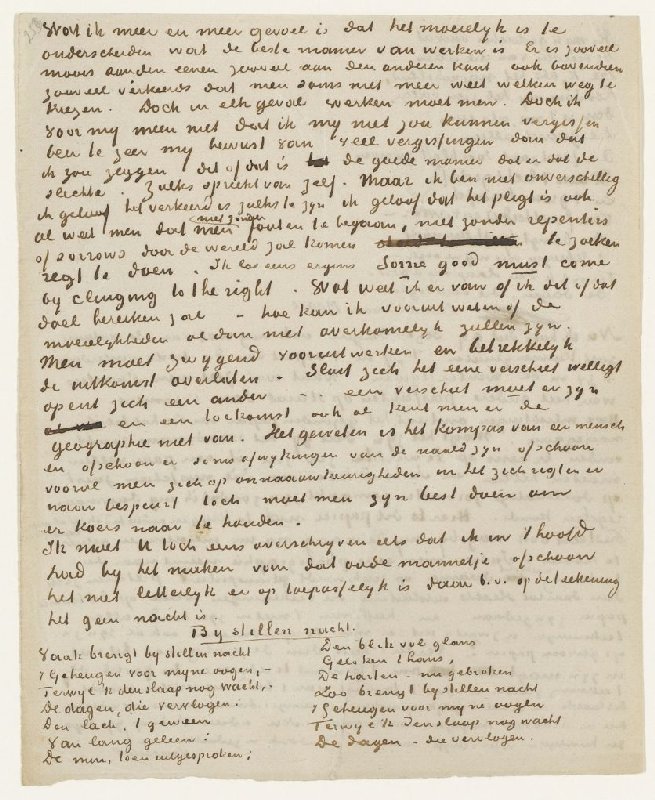 Wat ik meer en meer gevoel is dat het moeielyk is te
onderscheiden wat de beste manier van werken is. Er is zooveel
moois aan den eenen zooveel aan den anderen kant ook bovendien
zooveel verkeerds dat men soms niet meer weet welken weg te
kiezen. Doch in elk geval werken moet men. Doch ik
voor my meen niet dat ik my niet zou kunnen vergissen
ben te zeer my bewust van veel vergissingen dan dat
ik zou zeggen dit of dat is de goede manier dat en dat de
slechte. Zulks spreekt van zelf. Maar ik ben niet onverschillig
ik geloof het verkeerd is zulks te zyn ik geloof dat het pligt is ook
al weet men dat men niet zonder fouten te begaan, niet zonder repentirs
of sorrows door de wereld zal komen te zoeken
regt te doen. Ik las eens ergens Some good must come
by clinging to the right. Wat weet ik er van of ik dit of dat
doel bereiken zal – hoe kan ik vooruit weten of de
moeielykheden al dan niet overkomelyk zullen zyn.
Men moet zwygend vooruit werken en betrekkelyk
de uitkomst overlaten. Sluit zich het eene verschiet welligt
opent zich een ander – een verschiet moet er zyn
en een toekomst ook al kent men er de
geographie niet van. Het geweten is het kompas van een mensch
en ofschoon er soms afwykingen van de naald zyn ofschoon
vooral men zich op onnaauwkeurigheden in het zich rigten er
naar bespeurt toch moet men zyn best doen om
er koers naar te houden.
Ik moet U toch eens overschryven iets dat ik in 't hoofd
had by het maken van dat oude mannetje ofschoon
het niet letterlyk er op toepasselyk is daar b.v. op de teekening
het geen nacht is.
By stillen nacht.
Vaak brengt by stillen nacht
't Geheugen voor myne oogen, –
Terwyl 'k den slaap nog wacht, –
De dagen, die vervlogen:
Den lach, 't geween
Van lang geleen:
De min, toen uitgesproken;
Den blik vol glans
Geloken thans,
De harten – nu gebroken
Zoo brengt by stillen nacht
't Geheugen voor myne oogen
Terwyl 'k den slaap nog wacht
De dagen – die vervlogen.